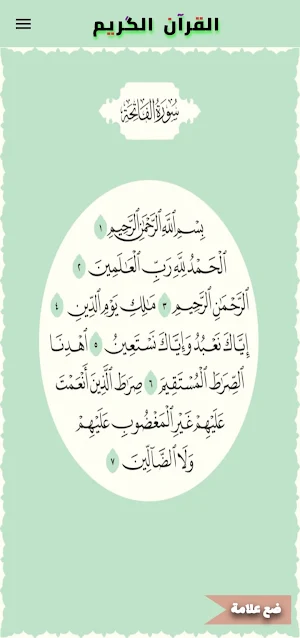 القرآن الكريم
سُورَةُ الفَاتِحَةِ
بِسْمِ اللَّهِ الرَّحْمَٰنِ الرَّحِيمِ ١
الْحَمْدُ لِلَّهِ رَبِّ الْعَالَمِينَ ٢
الرَّحْمَٰنِ الرَّحِيمِ ٣ مَالِكِ يَوْمِ الدِّينِ ٤
إِيَّاكَ نَعْبُدُ وَإِيَّاكَ نَسْتَعِينُ ٥ اهْدِنَا
الصِّرَاطَ الْمُسْتَقِيمَ ٦ صِرَاطَ الَّذِينَ أَنْعَمْتَ
عَلَيْهِمْ غَيْرِ الْمَغْضُوبِ عَلَيْهِمْ
وَلَا الضَّالِّينَ ٧
ضع علامة